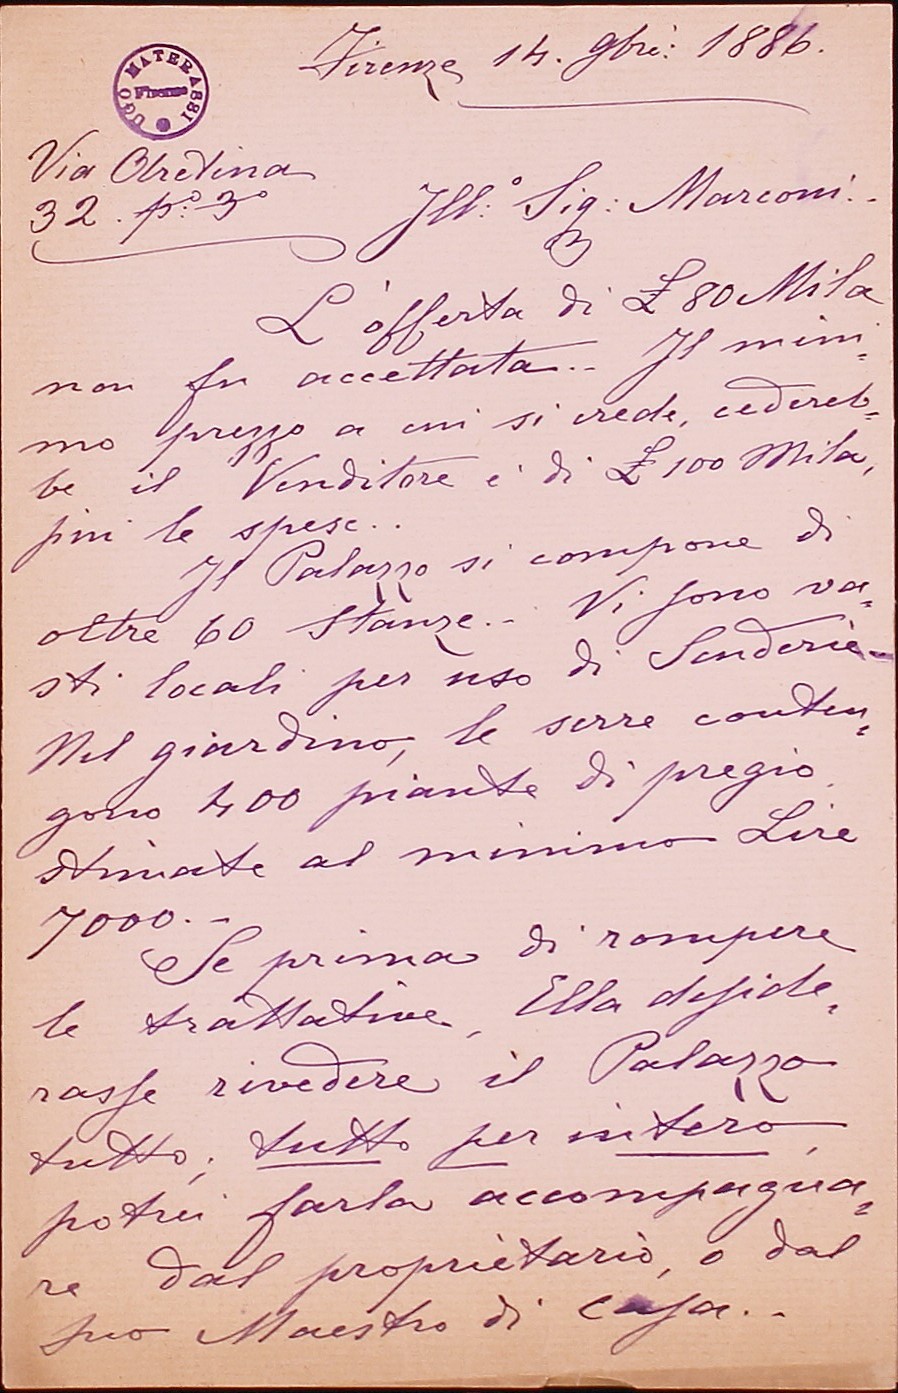 Firenze 14. 9bre: 1886.
UGO MATERASSI
Firenze
Via Oretina
32. p:º 3º
Ill:º Sig: Marconi..
L'offerta di £ 80 Mila
non fu accettata.. Il mini=
mo prezzo a cui si crede, cedereb=
be il Venditore è di £ 100 Mila,
più le spese..
Il Palazzo si compone di
oltre 60 stanze.. Vi sono va=
sti locali per uso di Scuderie-
Nel giardino, le serre conten=
gono 400 piante di pregio
stimate al minimo Lire
7000.-
Se prima di rompere
le trattative, Ella deside=
rasse rivedere il Palazzo
tutto, tutto per intero,
potrei farla accompagna=
re dal proprietario, o dal
suo Maestro di casa..